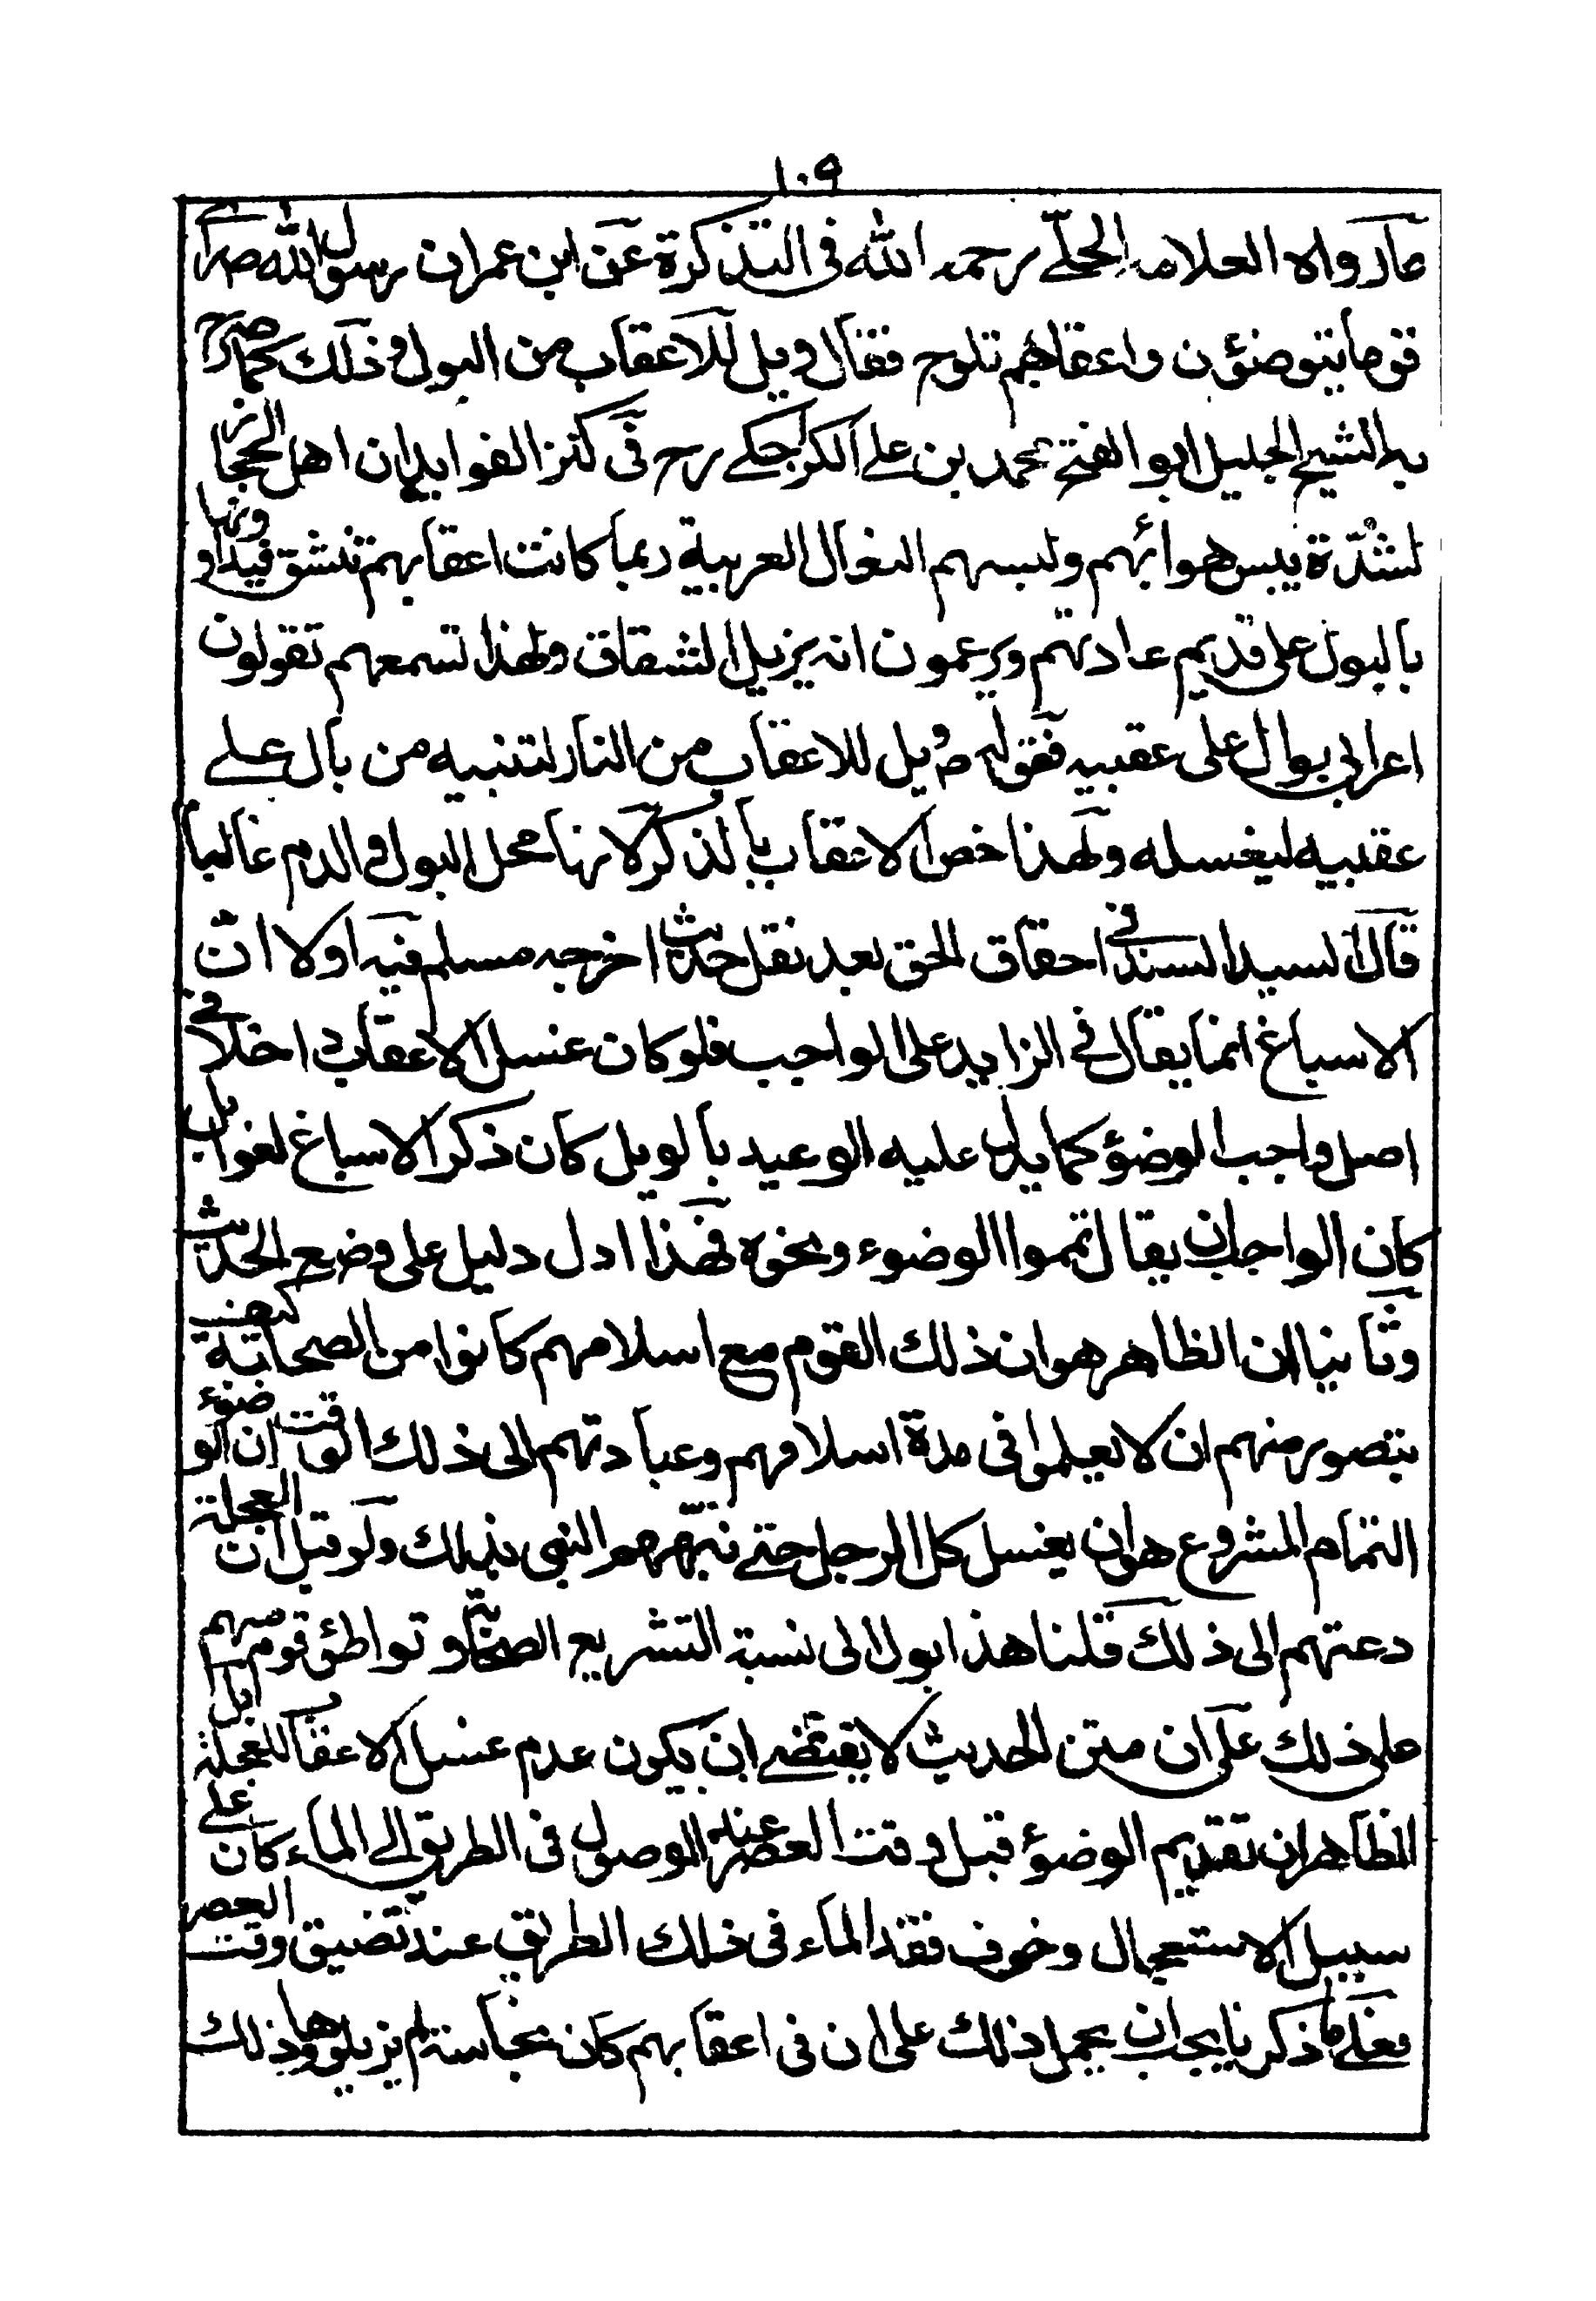 ١٠٩
مارواه العلامه الحلّے رحمه الله فى التذكرة عن ابن عمران رسول الله ص رأ
قوما يتوضئون واعقابهم تلوح فقال ويل للاعقاب من البول وذلك كما صرح
به الشيخ الجليل ابو الفتح محمد بن علے الكراجكے رح فى كنز الفوايد ان اهل الحجاز
لشدّة يبس هوائهم ولبسهم النعال العربية ربما كانت اعقابهم تنشق فيداوونها
بالبول على قديم عادتهم ويزعمون انه يزيل الشقاق ولهذا تسمعهم تقولون
اعرابى بوال على عقبيه فقوله ص ويل للاعقاب من النار لتنبيه من بال علے
عقبيه ليغسله ولهذا خص الاعقاب بالذكر لانها محل البول والدم غالبا
قال السيد السند فى احقاق الحق بعد نقل حديث اخرجه مسلم فيه اولا ان
الاسباغ انما يقال فى الزايد على الواجب فلو كان غسل الاعقاب داخلا فى
اصل واجب الوضوٴ كما يدل عليه الوعيد بالويل كان ذكر الاسباغ لغوا بل
كان الواجب ان يقال اتموا الوضوء ونحوه فهذا ادل دليل على وضع الحديث
وثانيا ان الظاهر هو ان ذلك القوم مع اسلامهم كانوا من الصحابة كيف
يتصور منهم ان لا يعلموا فى مدة اسلامهم وعبادتهم الى ذلك الوقت ان الوضوء
التمام المشروع هو ان يغسل كل الرجل حتے نبههم النبى بذلك ولو قيل ان العجلة
دعتهم الى ذلك قلنا هذا يول الى نسبة التشريع الصحابة وتواطئ قوم منهم
على ذلك على ان متن الحديث لا يقتضے ان يكون عدم غسل الاعقاب للعجلة بل
الظاهر ان تقديم الوضوٴ قبل وقت العصر عند الوصول فى الطريق الے الماء كان علے
سبيل الاستعجال وخوف فقد الماء فى ذلك الطريق عند تضيق وقت العصر
فعلے ما ذكرنا يجب ان يحمل ذلك على ان فى اعقابهم كان نجاسة لم يزيلوها وذلك